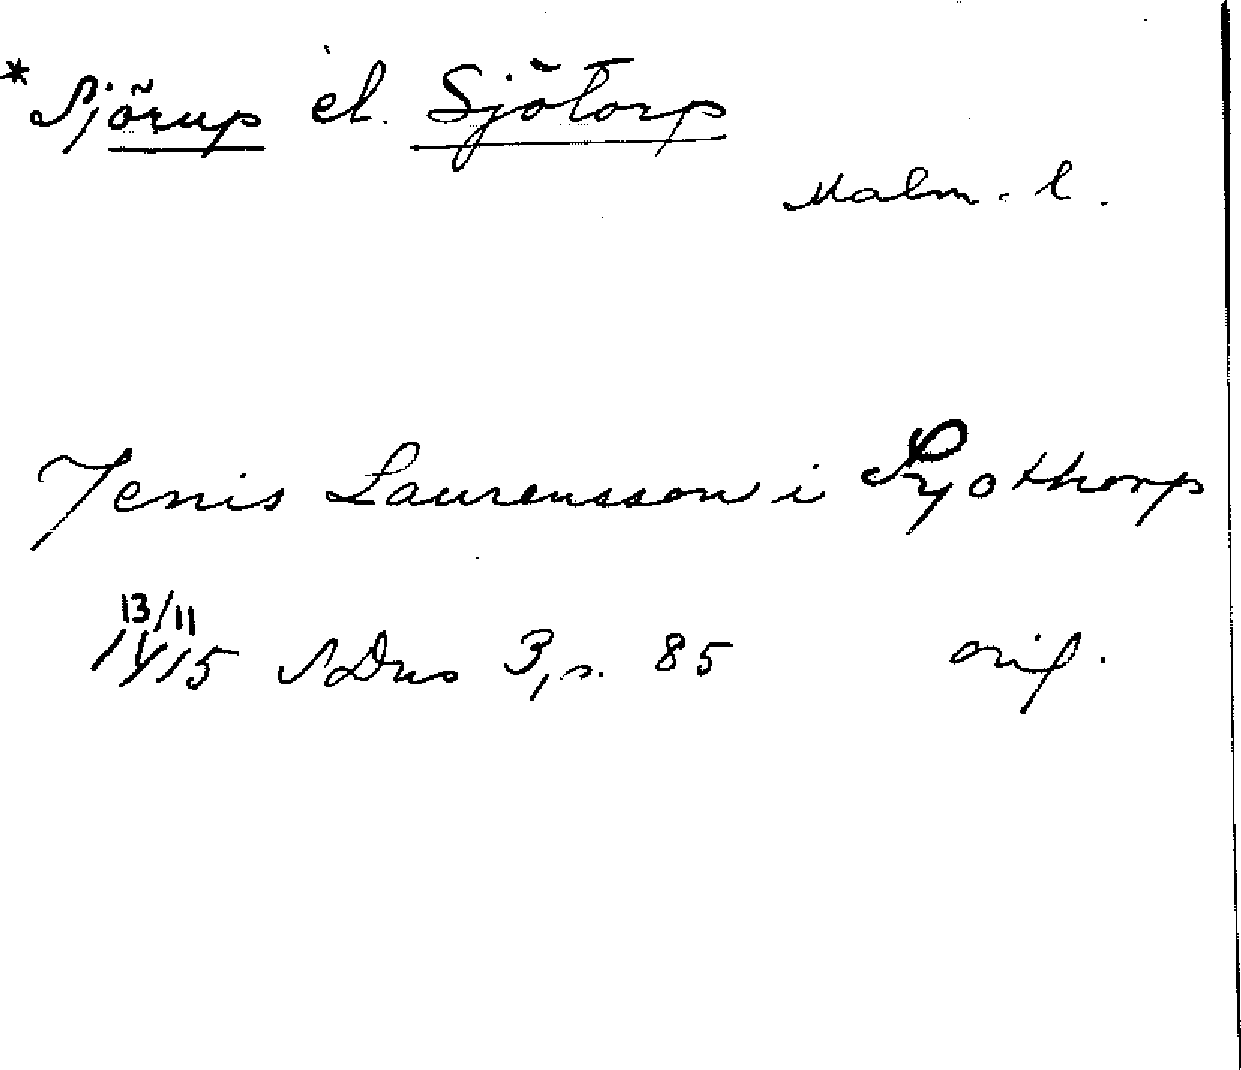 * Sjörup el. Sjötorp
Malm. l.
Jenis Laurensson i Syothorp
13/11
1415 SDns 3, s. 85 orig.